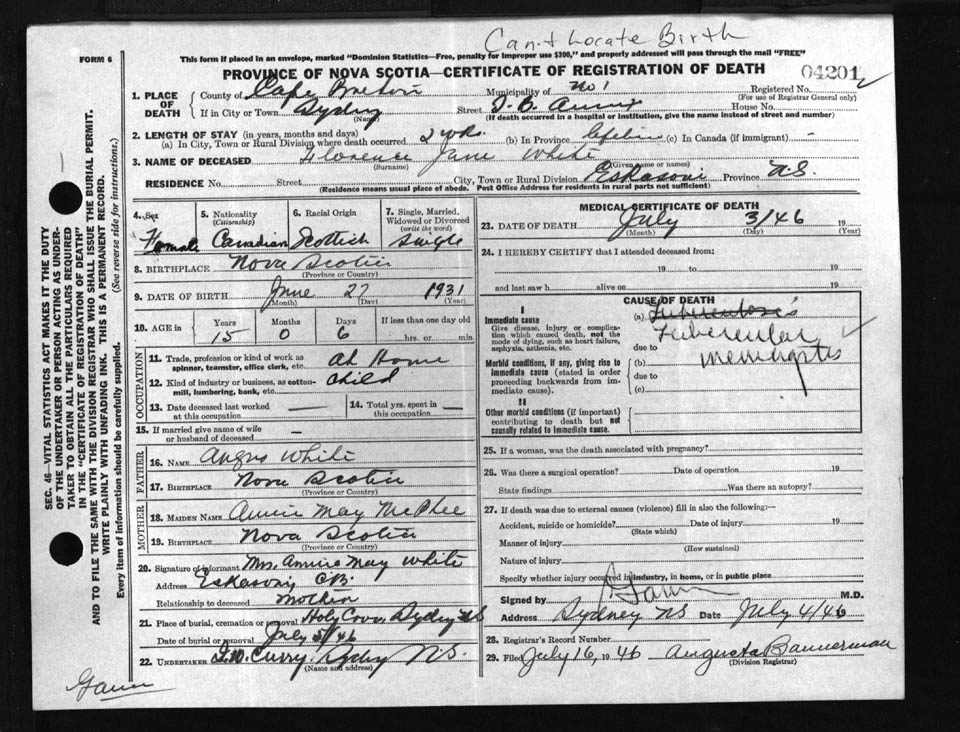 Can't Locate Birth
FORM 6
This form if placed in an envelope, marked "Dominion Statistics—Free, penalty for improper use $300," and properly addressed will pass through the mail "FREE"
PROVINCE OF NOVA SCOTIA—CERTIFICATE OF REGISTRATION OF DEATH
04201
1. PLACE OF DEATH
County of Cape Breton Municipality of No 1 Registered No.
(For use of Registrar General only)
If in City or Town Sydney Street T. B. Annex House No.
(Name) (If death occurred in a hospital or institution, give the name instead of street and number)
2. LENGTH OF STAY (in years, months and days)
(a) In City, Town or Rural Division where death occurred 2 wks. (b) In Province lifetime (c) In Canada (if immigrant) -
3. NAME OF DECEASED Florence Jane White
(Surname) (Given name or names)
RESIDENCE No. Street City, Town or Rural Division Eskasoni Province N.S.
(Residence means usual place of abode. Post Office Address for residents in rural parts not sufficient)
4. Sex
Female
5. Nationality (Citizenship)
Canadian
6. Racial Origin
Scottish
7. Single, Married, Widowed or Divorced (write the word)
Single
8. BIRTHPLACE Nova Scotia
(Province or Country)
9. DATE OF BIRTH June 27 1931
(Month) (Day) (Year)
10. AGE in
Years Months Days If less than one day old
15 0 6 hrs. or min.
OCCUPATION
11. Trade, profession or kind of work as spinner, teamster, office clerk, etc. At Home
12. Kind of industry or business, as cotton-mill, lumbering, bank, etc. Child
13. Date deceased last worked at this occupation —
14. Total yrs. spent in this occupation —
15. If married give name of wife or husband of deceased —
FATHER
16. NAME Angus White
17. BIRTHPLACE Nova Scotia
(Province or Country)
MOTHER
18. MAIDEN NAME Annie May McPhee
19. BIRTHPLACE Nova Scotia
(Province or Country)
20. Signature of informant Mrs. Annie May White
Address Eskasoni CB.
Relationship to deceased Mother
21. Place of burial, cremation or removal Holy Cross, Sydney NS
Date of burial or removal July 5/46
22. UNDERTAKER T.W. Curry, Sydney N.S.
(Name and address)
MEDICAL CERTIFICATE OF DEATH
23. DATE OF DEATH July 3/46 19
(Month) (Day) (Year)
24. I HEREBY CERTIFY that I attended deceased from:
19 to 19
and last saw h alive on 19
CAUSE OF DEATH
I
Immediate cause
Give disease, injury or complication which caused death, not the mode of dying, such as heart failure, asphyxia, asthenia, etc.
Morbid conditions, if any, giving rise to immediate cause (stated in order proceeding backwards from immediate cause).
II
Other morbid conditions (if important) contributing to death but not causally related to immediate cause.
(a) Tuberculosis
Tubercular
due to
meningitis
(b)
due to
(c)
25. If a woman, was the death associated with pregnancy?
26. Was there a surgical operation? Date of operation 19
State findings Was there an autopsy?
27. If death was due to external causes (violence) fill in also the following:—
Accident, suicide or homicide? Date of injury 19
(State which)
Manner of injury
(How sustained)
Nature of injury
Specify whether injury occurred in industry, in home, or in public place
Signed by M.D.
Address Sydney NS Date July 4/46
28. Registrar's Record Number
29. Filed July 16, 1946 Augusta Bannerman
(Division Registrar)
SEC. 46—VITAL STATISTICS ACT MAKES IT THE DUTY
OF THE UNDERTAKER OR PERSON ACTING AS UNDER-
TAKER TO OBTAIN ALL THE PARTICULARS REQUIRED
IN THE "CERTIFICATE OF REGISTRATION OF DEATH"
AND TO FILE THE SAME WITH THE DIVISION REGISTRAR WHO SHALL ISSUE THE BURIAL PERMIT.
WRITE PLAINLY WITH UNFADING INK. THIS IS A PERMANENT RECORD.
Every item of information should be carefully supplied. (See reverse side for instructions.)